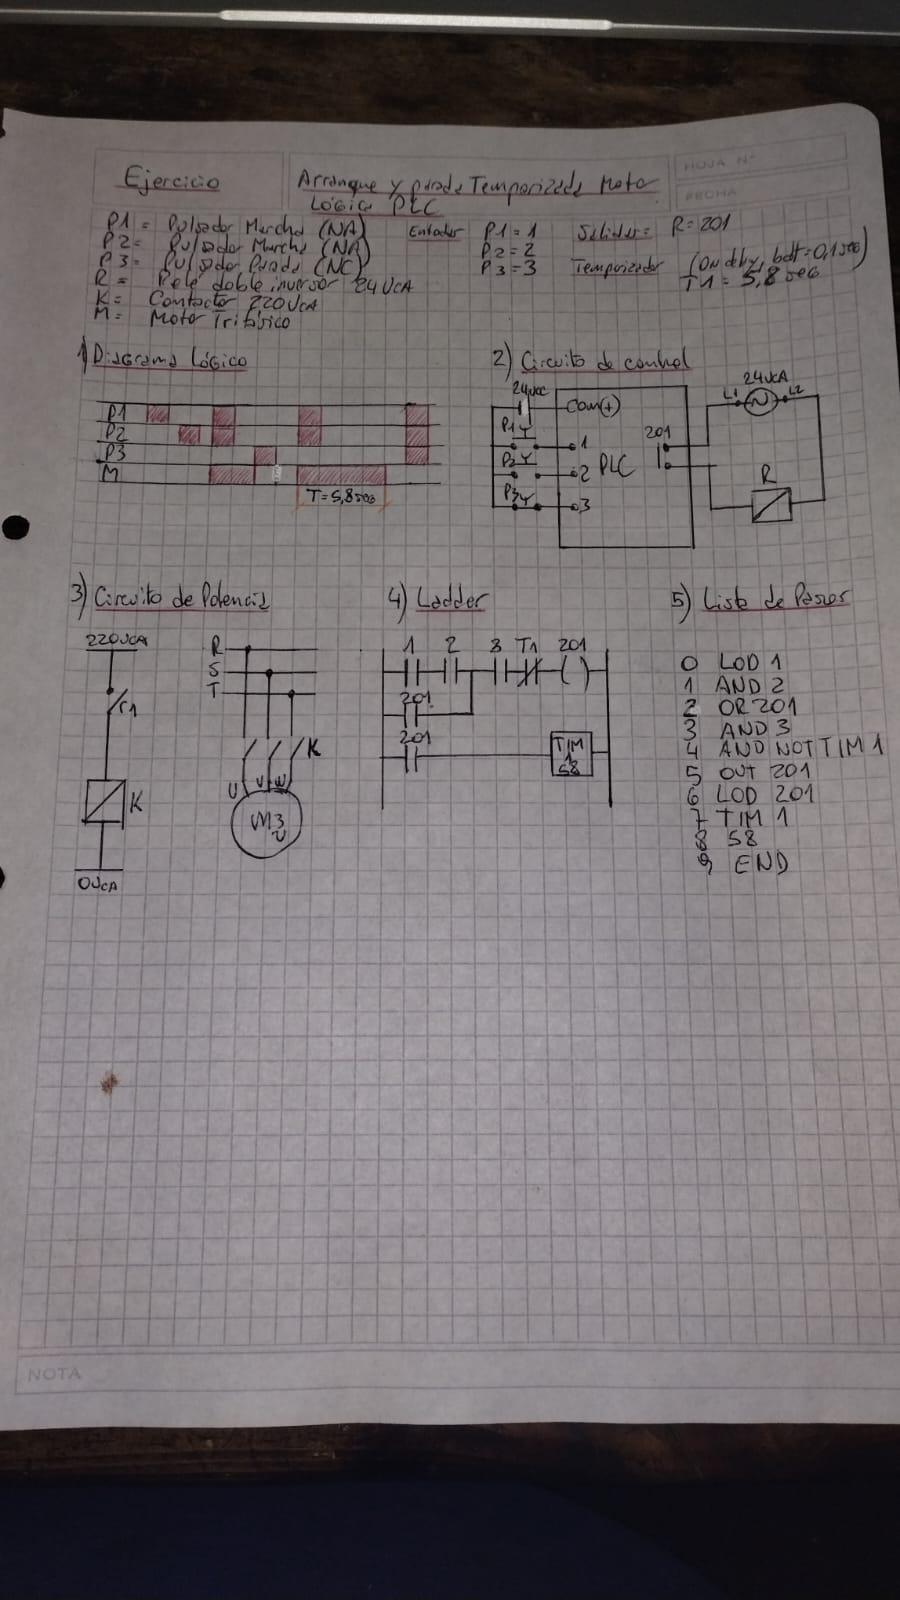 HOJA N°
FECHA
Ejercicio
Arranque y parada Temporizada Motor
Lógica PLC
P1 = Pulsador Marcha (NA)
P2 = Pulsador Marcha (NA)
P3 = Pulsador Parada (NC)
R = Relé doble inversor 24VCA
K = Contactor 220VCA
M = Motor Trifásico
Entradas P1 = 1
P2 = 2
P3 = 3
Salidas = R = 201
Temporizador (On dly, bdt = 0,1 seg)
T1 = 5,8 seg
1) Diagrama Lógico
P1
P2
P3
M
T = 5,8 seg
2) Circuito de control
24VCC
Com(+)
P1
1
P2
2
P3
3
PLC
201
24VCA
L1
L2
R
3) Circuito de Potencia
220VCA
r1
K
0VCA
R
S
T
K
U V W
M3
4) Ladder
1 2 3 T1 201
201
201
TIM
1
58
5) Lista de Pasos
0 LOD 1
1 AND 2
2 OR 201
3 AND 3
4 AND NOT TIM 1
5 OUT 201
6 LOD 201
7 TIM 1
8 58
9 END
NOTA